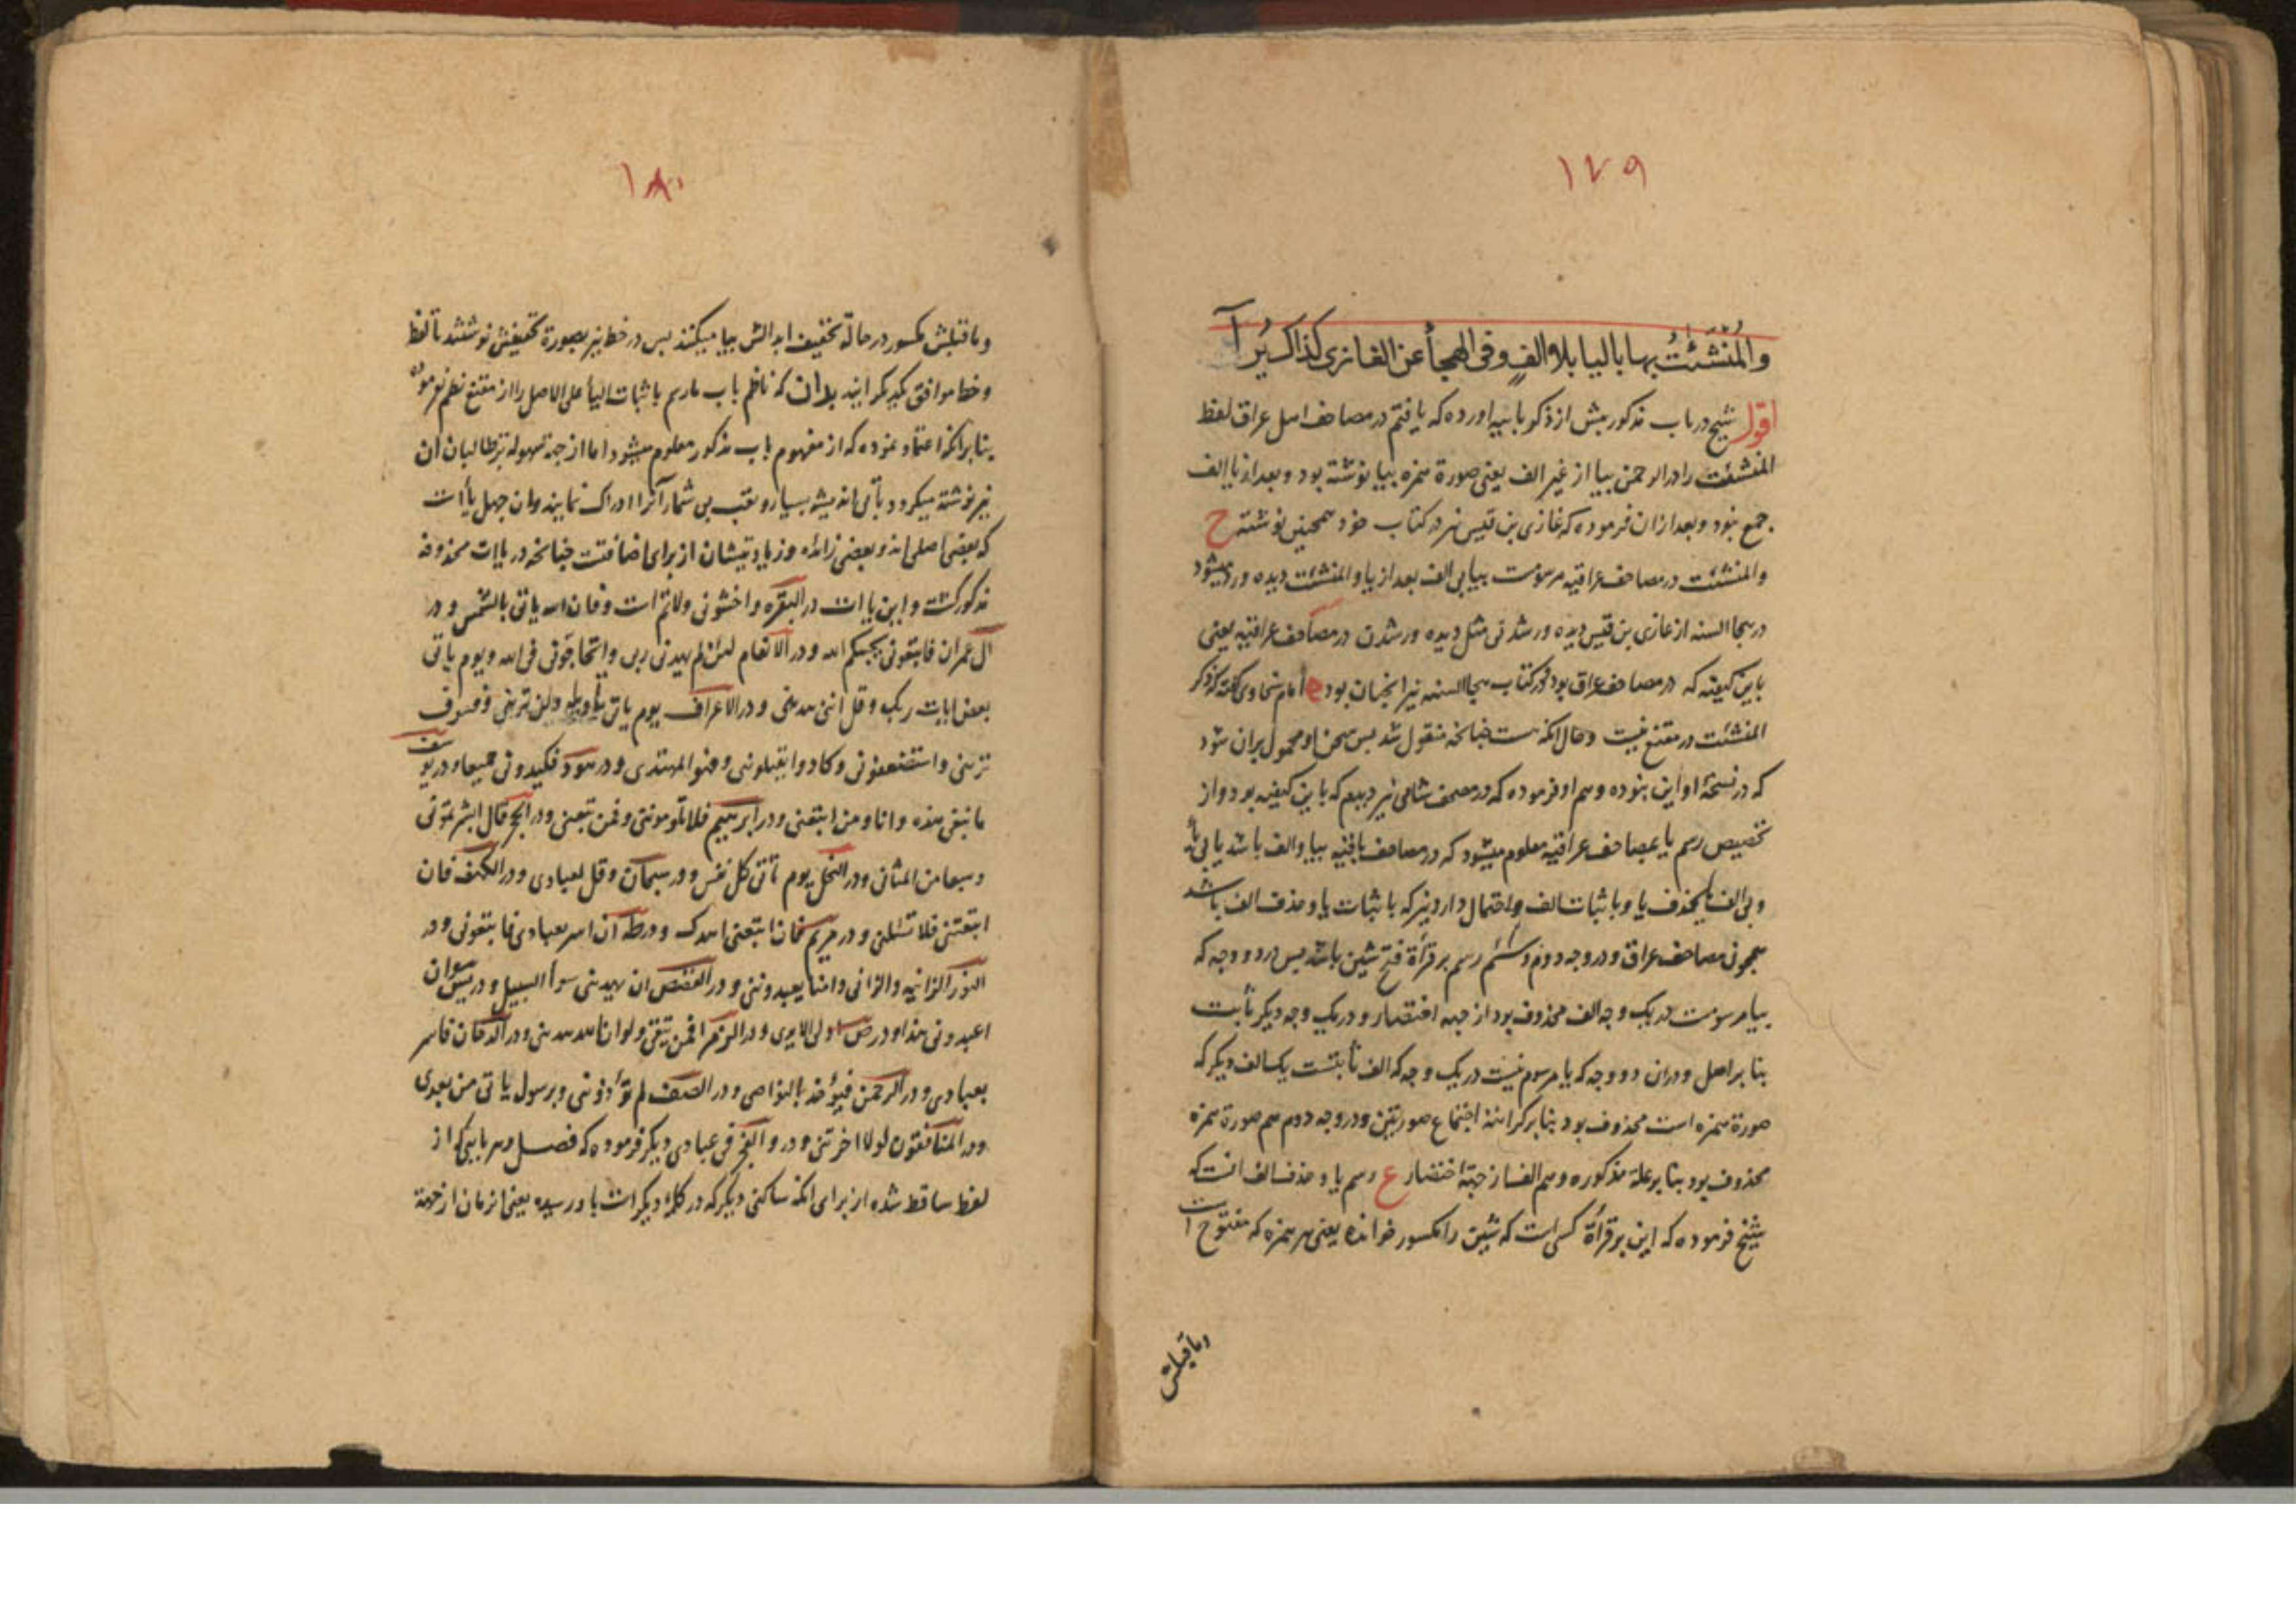 ١٧٩
والمنشئت بها باليا بلا الف وفی الهجأ عن الغازی کذاک یرا
اقول شیخ در باب مذکور پیش از ذکر باییه اورده که یافتم در مصاحف اهل عراق لفظ
المنشئت را در الرحمن بیا از غیر الف یعنی صورة همزه بیا نوشته بود و بعد از یا الف
جمع نبود و بعد ازان فرموده که غازی بن قیس نیز در کتاب خود همچنین نوشته ح
والمنشئت در مصاحف عراقیه مرسومست بیا بی الف بعد از یا و المنشئت دیده ور میشود
در هجا السنه از غازی بن قیس دیده ور شدنی مثل دیده ور شدن در مصاحف عراقیه یعنی
باین کیفیته که در مصاحف عراق بود در کتاب هجا السنه نیز انچنان بود امام سخاوی گفته که ذکر
المنشئت در مقنع نیست و حال انکه هست چنانچه منقول شد پس سخن او محمول بران شود
که در نسخهٔ او این نبوده و هم او فرموده که در مصحف شامی نیز دیدم که باین کیفیه بود و از
تخصیص رسم یا بمصاحف عراقیه معلوم میشود که در مصاحف باقیه بیا و الف باشد یا بی یا
و بی الف بحذف یا و با ثبات الف و احتمال دارد نیز که با ثبات یا و حذف الف باشد
همچون مصاحف عراق و در وجه دوم و سیم رسم بر قرأة فتح شین باشد پس در دو وجه که
بیا مرسومست در یک وجه الف محذوف بود از جهه اختصار و در یک وجه دیگر ثابت
بنا بر اصل و دران دو وجه که یا مرسوم نیست در یک وجه که الف ثابتست یک الف دیگر که
صورة همزه است محذوف بود بنا بر کراهة اجتماع صورتین و در وجه دوم هم صورة همزه
محذوف بود بنا بر علة مذکوره و هم الف از جهة اختصار ع رسم یا و حذف الف انست که
شیخ فرموده که این بر قرأة کسی است که شین را مکسور خوانده یعنی هر همزه که مفتوح است
وماقبلش
١٨٠
وماقبلش مکسور در حالة تخفیف ابدالش بیا میکنند پس در خط نیز بصورة تخفیفش نوشتند تا لفظ
و خط موافق یکدیگر ایند بدان که ناظم باب مارسم باثبات الیأ علی الاصل را از مقنع نظم نفرموده
بنا برانکه اعتماد نموده که از مفهوم باب مذکور معلوم میشود اما از جهة سهوله بر طالبان ان
نیز نوشته میگردد تا بی اندیشه بسیار و تعب بی شمار آنرا ادراک نمایند و ان چهل یأ است
که بعضی اصلی اند و بعضی زائده و زیادتیشان از برای اضافتست چنانچه در یاات محذوفه
مذکور گشت و این یا ات در البقره واخشونی ولاتم است وفان الله یاتی بالشمس و در
ال عمران فاتبعونی یحببکم الله و در الانعام لئن لم یهدنی ربی واتحاجونی فی الله ویوم یاتی
بعض ایات ربک وقل اننی هدینی و در الاعراف یوم یاتی تأویله ولن ترینی وفسوف
ترینی واستضعفونی وکادوا یقتلوننی وفهو المهتدی و در هود فکیدونی جمیعا و در یوسف
مانبغی هذه وانا ومن اتبعنی و در ابرهیم فلا تلومونی وفمن تبعنی و در الحجر قال ابشرتمونی
وسبعا من المثانی و در النحل یوم تأتی کل نفس و در سبحان وقل لعبادی و در الکهف فان
اتبعتنی فلا تسئلنی و در مریم فاتبعنی اهدک و در طه ان اسر بعبادی فاتبعونی و در
النور الزانیه والزانی وامنا یعبدوننی و در القصص ان یهدینی سوأ السبیل و در یس وان
اعبدونی هذا و در ص اولی الایدی و در الزمر افمن یتقی ولو ان الله هدینی و در الدخان فاسر
بعبادی و در الرحمن فیؤخذ بالنواصی و در الصف لم تؤذوننی وبرسول یاتی من بعدی
و در المنافقون لولا اخرتنی و در و الفجر فی عبادی دیگر فرموده که فصل و هر یایی که از
لفظ ساقط شده از برای انکه ساکنی دیگر که در کلمهٔ دیگر است باو رسیده یعنی از مان از جهة